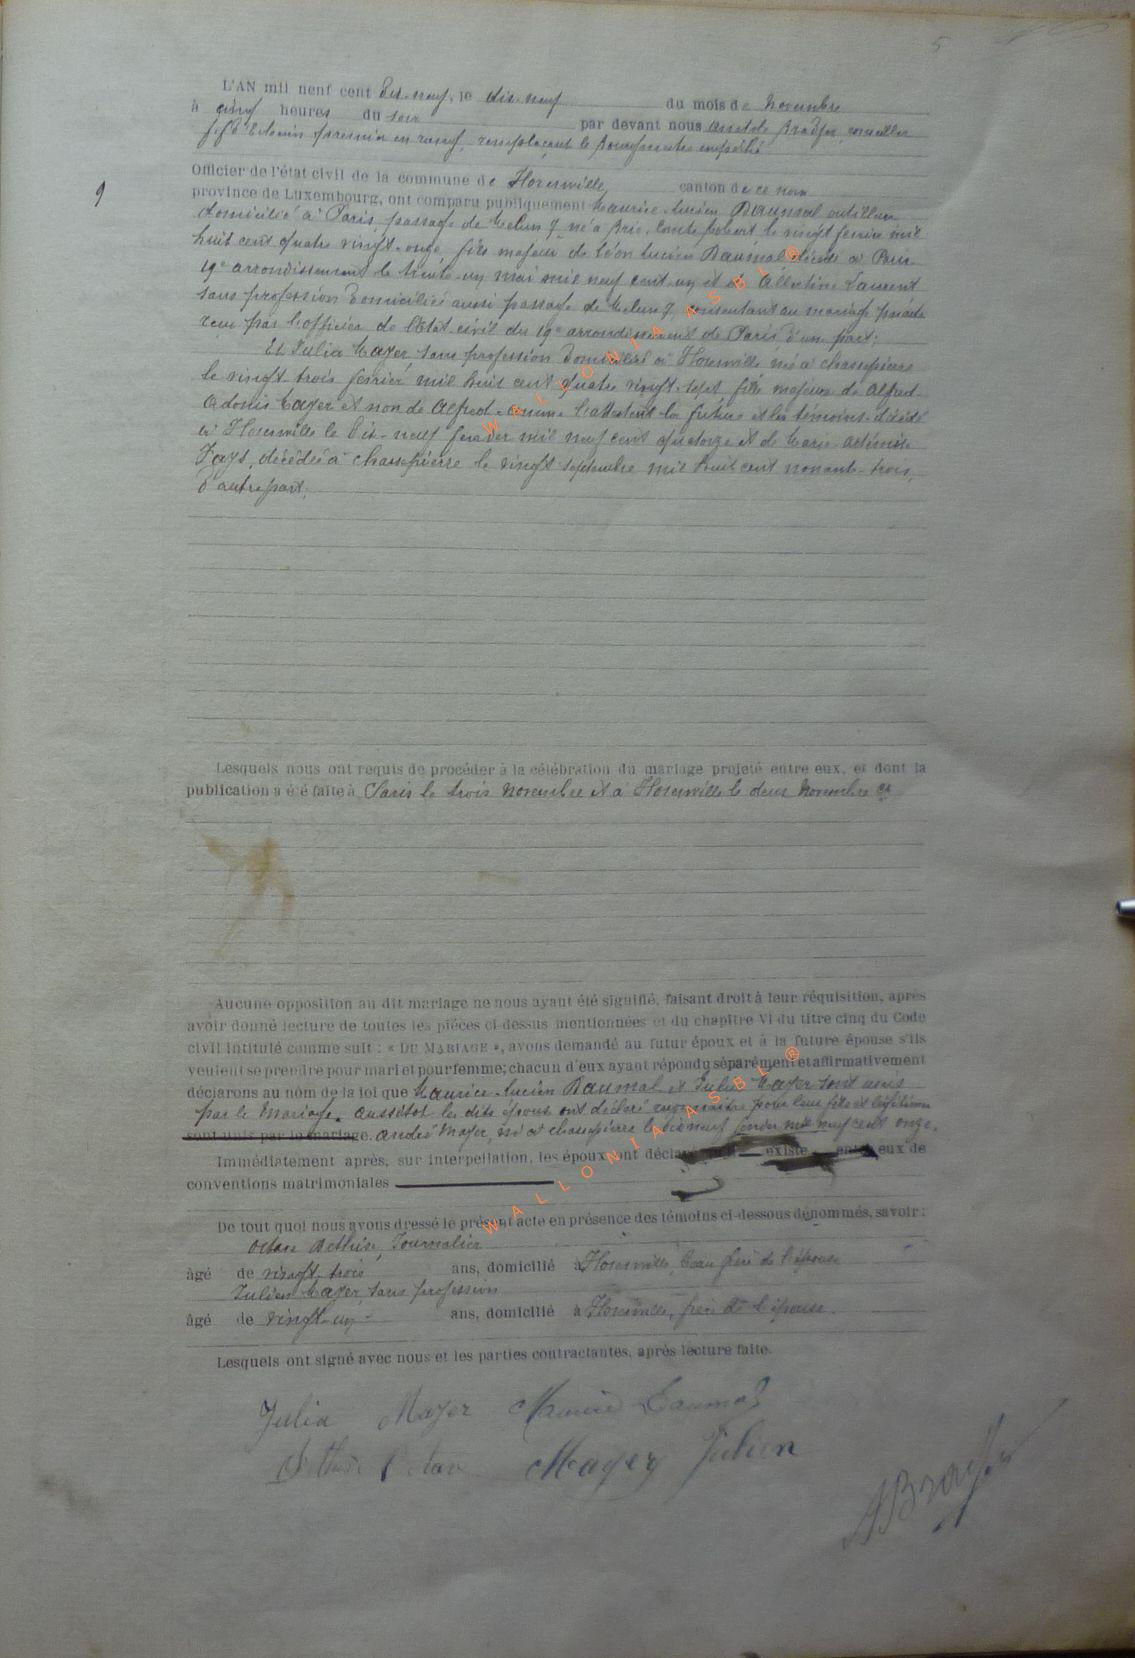 5
L'AN mil neuf cent dix-neuf, le dix-neuf du mois de Novembre
à cinq heures du soir par devant nous Anatole Bradfer, conseiller
f.f. d'Echevin premier en rang, remplaçant le Bourgmestre empêché
9
Officier de l'état civil de la commune de Florenville, canton de ce nom
province de Luxembourg, ont comparu publiquement Maurice-Lucien Daumal outilleur
domicilié à Paris, passage de Melun 7, né à Brie-Comte-Robert le vingt février mil
huit cent quatre vingt-onze, fils majeur de Léon Lucien Daumal décédé à Paris
19e arrondissement le trente-un mai mil neuf cent-un et de Albertine Laurent
sans profession domiciliée aussi passage de Melun 7, consentant au mariage par acte
reçu par l'officier de l'Etat-civil du 19e arrondissement de Paris d'un part;
Et Julia Mayer sans profession domiciliée à Florenville née à Chassepierre
le vingt-trois février mil huit cent quatre vingt-sept fille majeure de Alfred
Adonis Mayer et non de Alfred comme l'attestent la future et les témoins décédé
à Florenville le dix-neuf février mil neuf cent quatorze et de Marie Artémise
Jays, décédée à Chassepierre le vingt septembre mil huit cent nonante-trois,
d'autre part.
Lesquels nous ont requis de procéder à la célébration du mariage projeté entre eux, et dont la
publication a été faite à Paris le trois Novembre et à Florenville le deux Novembre ct
Aucune opposition au dit mariage ne nous ayant été signifié, faisant droit à leur réquisition, après
avoir donné lecture de toutes les pièces ci-dessus mentionnées et du chapitre VI du titre cinq du Code
civil intitulé comme suit : « DU MARIAGE », avons demandé au futur époux et à la future épouse s'ils
veulent se prendre pour mari et pour femme; chacun d'eux ayant répondu séparément et affirmativement
déclarons au nom de la loi que Maurice-Lucien Daumal et Julia Mayer sont unis
par le Mariage. Aussitôt les dits époux ont déclaré reconnaître pour leur fils et légitimer
sont unis par le mariage. André Mayer, né à Chassepierre le dix neuf février mil neuf cent onze.
Immédiatement après, sur interpellation, les époux ont déclaré qu'il existe entre eux de
conventions matrimoniales
De tout quoi nous avons dressé le présent acte en présence des témoins ci-dessous dénommés, savoir :
Octave Dethise, Journalier
âgé de vingt-trois ans, domicilié à Florenville, beau frère de l'épouse
Julien Mayer, sans profession
âgé de vingt-un ans, domicilié à Florenville, frère de l'épouse.
Lesquels ont signé avec nous et les parties contractantes, après lecture faite.
Julia Mayer Maurice Daumal
Octave Mayer Julien
ABradfer
WALLONIA ASBL ®
WALLONIA ASBL ®